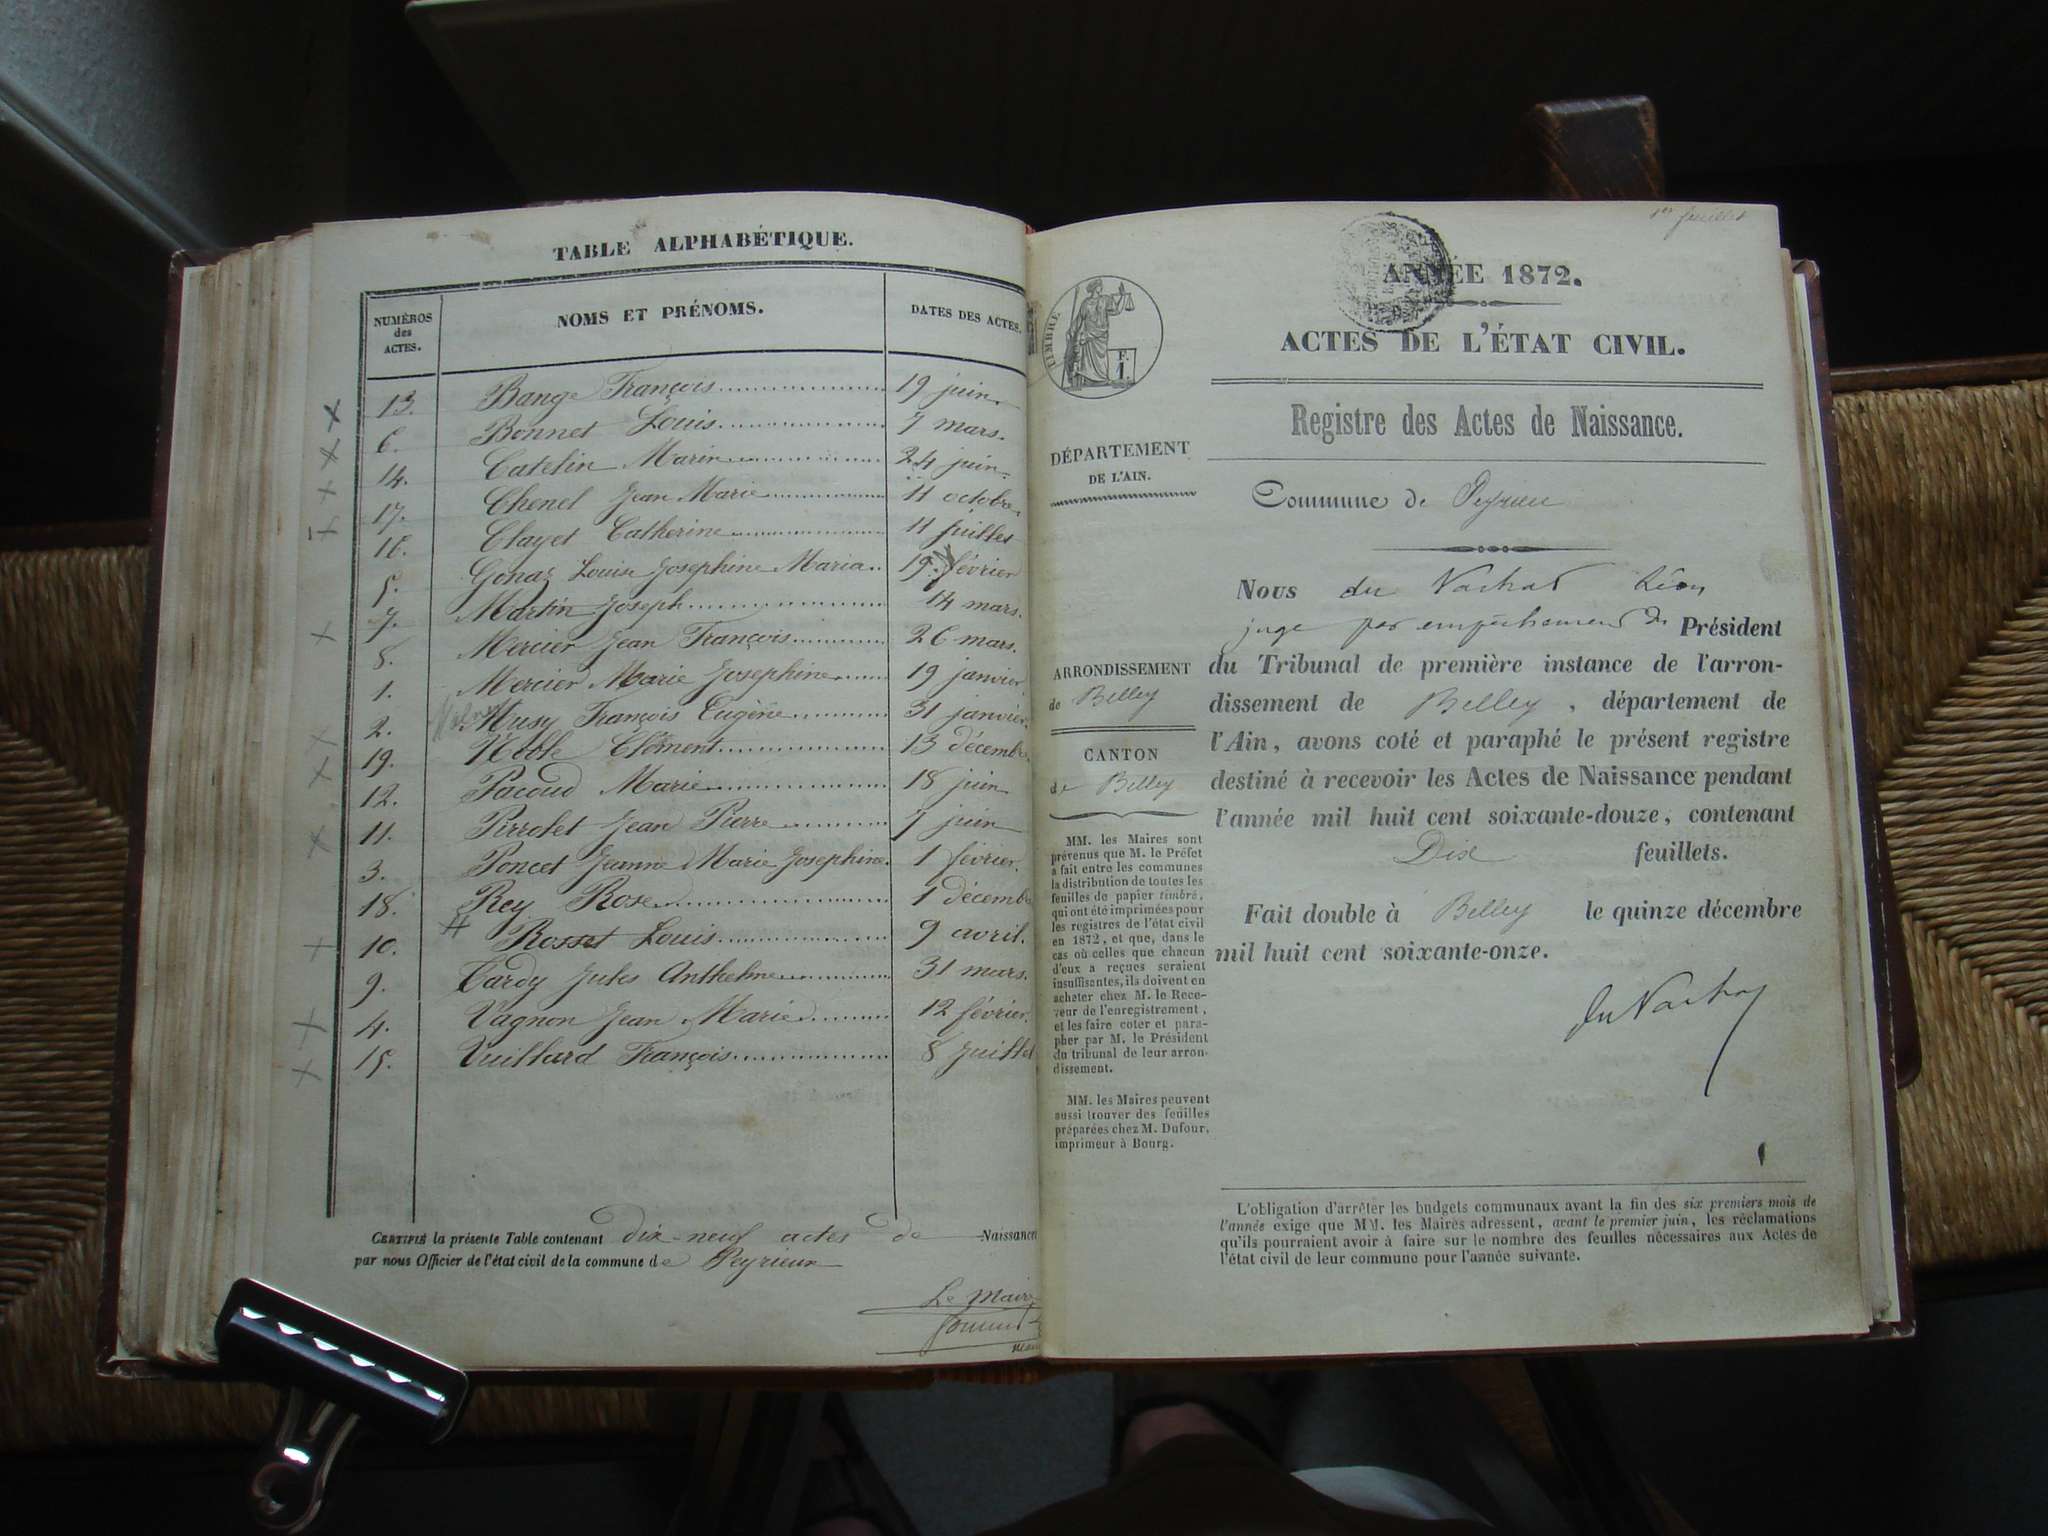 TABLE ALPHABÉTIQUE.
NUMÉROS des ACTES. NOMS ET PRÉNOMS. DATES DES ACTES.
13. Bange François 19 juin.
6. Bonnet Louis 7 mars.
14. Catelin Marin 24 juin.
17. Chenel Jean Marie 11 octobre.
16. Clayet Catherine 11 juillet
5. Gonaz Louise Josephine Maria 19 février
7. Martin Joseph 14 mars.
8. Mercier Jean François 26 mars.
1. Mercier Marie Josephine 19 janvier
2. Musy François Eugène 31 janvier.
19. Clément 13 décembre
12. Pacoud Marie 18 juin
11. Perrolet Jean Pierre 7 juin
3. Poncet Jeanne Marie Josephine 1 février.
18. Rey Rose 1 décembre
10. Rosset Louis 9 avril.
9. Tardy Jules Anthelme 31 mars.
4. Vagnon Jean Marie 12 février.
15. Vuillard François 8 Juillet
CERTIFIÉ la présente Table contenant dix-neuf actes de Naissance
par nous Officier de l'état civil de la commune de Peyrieux
Le Maire
1er feuillet
ANNÉE 1872.
ACTES DE L'ÉTAT CIVIL.
TIMBRE
F.
1.
Registre des Actes de Naissance.
DÉPARTEMENT
DE L'AIN.
Commune de Peyrieu
Nous du Vachat Léon
juge par empêchement du Président
du Tribunal de première instance de l'arron-
dissement de Belley, département de
l'Ain, avons coté et paraphé le présent registre
destiné à recevoir les Actes de Naissance pendant
l'année mil huit cent soixante-douze, contenant
Dix feuillets.
Fait double à Belley le quinze décembre
mil huit cent soixante-onze.
du Vachat
ARRONDISSEMENT
de Belley
CANTON
de Belley
MM. les Maires sont
prévenus que M. le Préfet
a fait entre les communes
la distribution de toutes les
feuilles de papier timbré,
qui ont été imprimées pour
les registres de l'état civil
en 1872, et que, dans le
cas où celles que chacun
d'eux a reçues seraient
insuffisantes, ils doivent en
acheter chez M. le Rece-
veur de l'enregistrement,
et les faire coter et para-
pher par M. le Président
du tribunal de leur arron-
dissement.
MM. les Maires peuvent
aussi trouver des feuilles
préparées chez M. Dufour,
imprimeur à Bourg.
L'obligation d'arrêter les budgets communaux avant la fin des six premiers mois de
l'année exige que MM. les Maires adressent, avant le premier juin, les réclamations
qu'ils pourraient avoir à faire sur le nombre des feuilles nécessaires aux Actes de
l'état civil de leur commune pour l'année suivante.